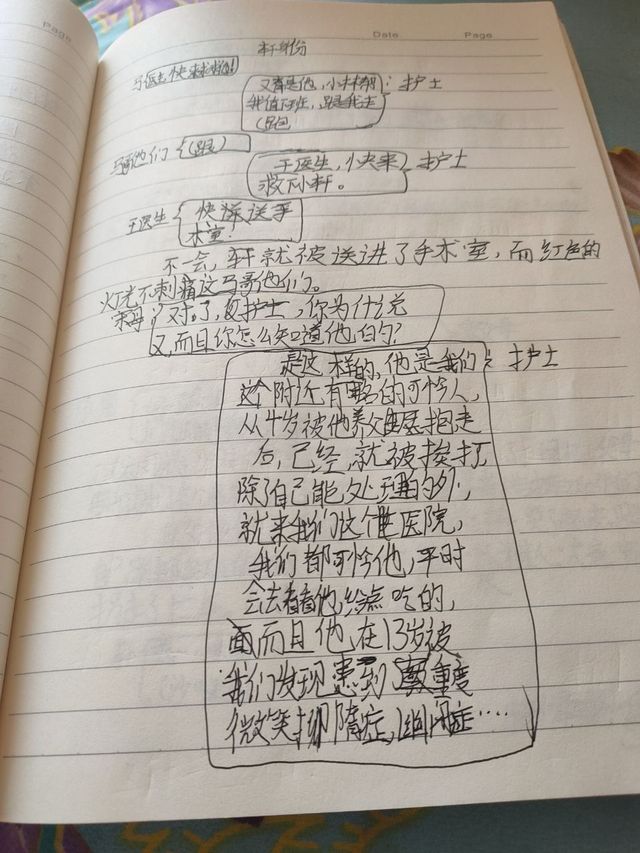 Page
Date Page
轩身份
马医生快来救他!
又是他,小林帮 : 护士
我值下班,跟我走
马哥他们 {(跟)
于医生,快来 护士
救下小轩。
于医生 { 快送手
术室!
不一会,轩就被送进了手术室,而红色的
灯光不刺着这马哥他们。
对了,护士,你为什么说
又,而且你怎么知道他的?
是这样的,他是我们 : 护士
这个附近有名的可怜人,
从4岁被他养父抱走
后,已经,就被挨打,
除了自己能处理的外,
就来我们这个医院,
我们都可怜他,平时
会去看看他,给点吃的,
而且他,在13岁被
我们发现患到重度
微笑抑郁症,幽闭症····